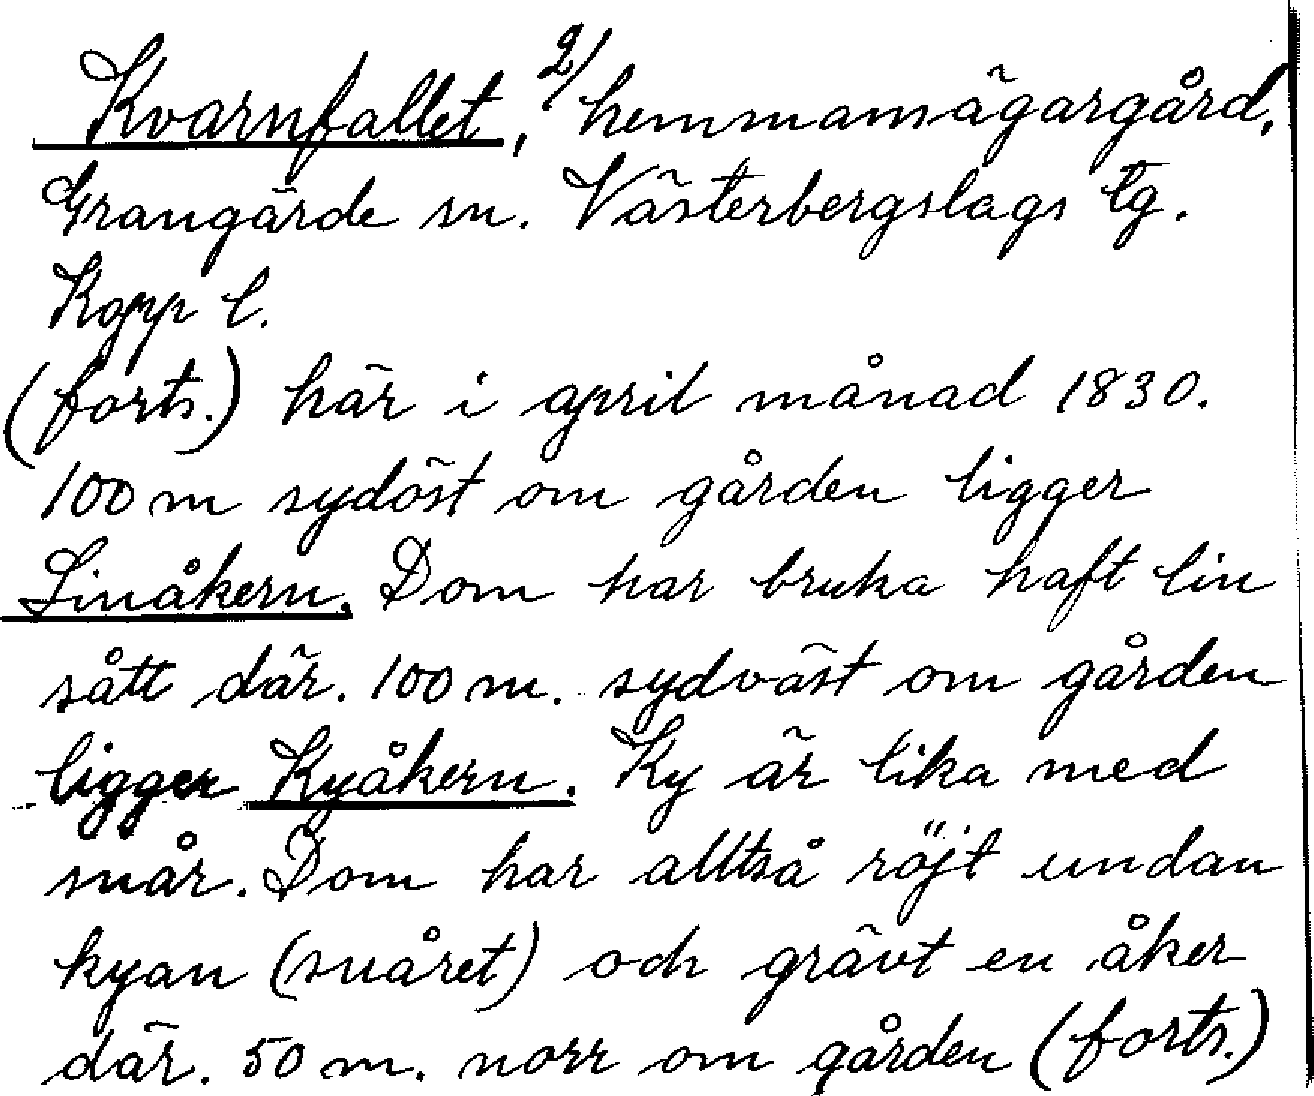 Kvarnfallet, 2/ hemmansägargård,
Grangärde sn. Västerbergslags tg.
Kopp l.
(forts.) här i april månad 1830.
100 m sydöst om gården ligger
Linåkern. Dom har bruka haft lin
sått där. 100 m. sydväst om gården
ligger Kyåkern. Ky är lika med
snår. Dom har alltså röjt undan
kyan (snåret) och grävt en åker
där. 50 m. norr om gården (forts.)